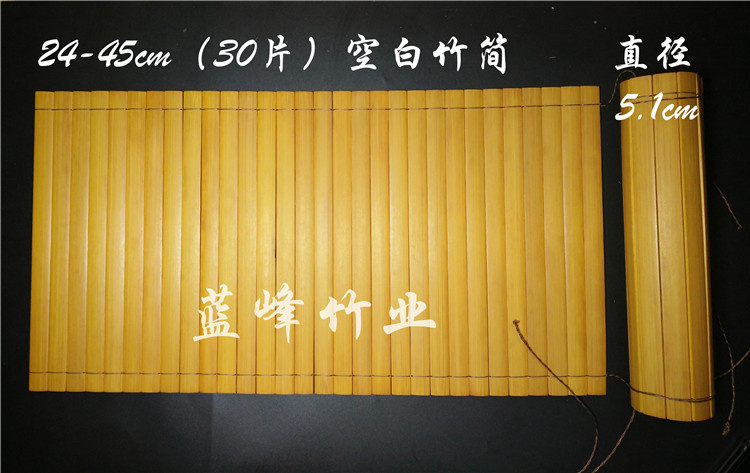 24-45cm（30片）空白竹简
直径
5.1cm
蓝峰竹业